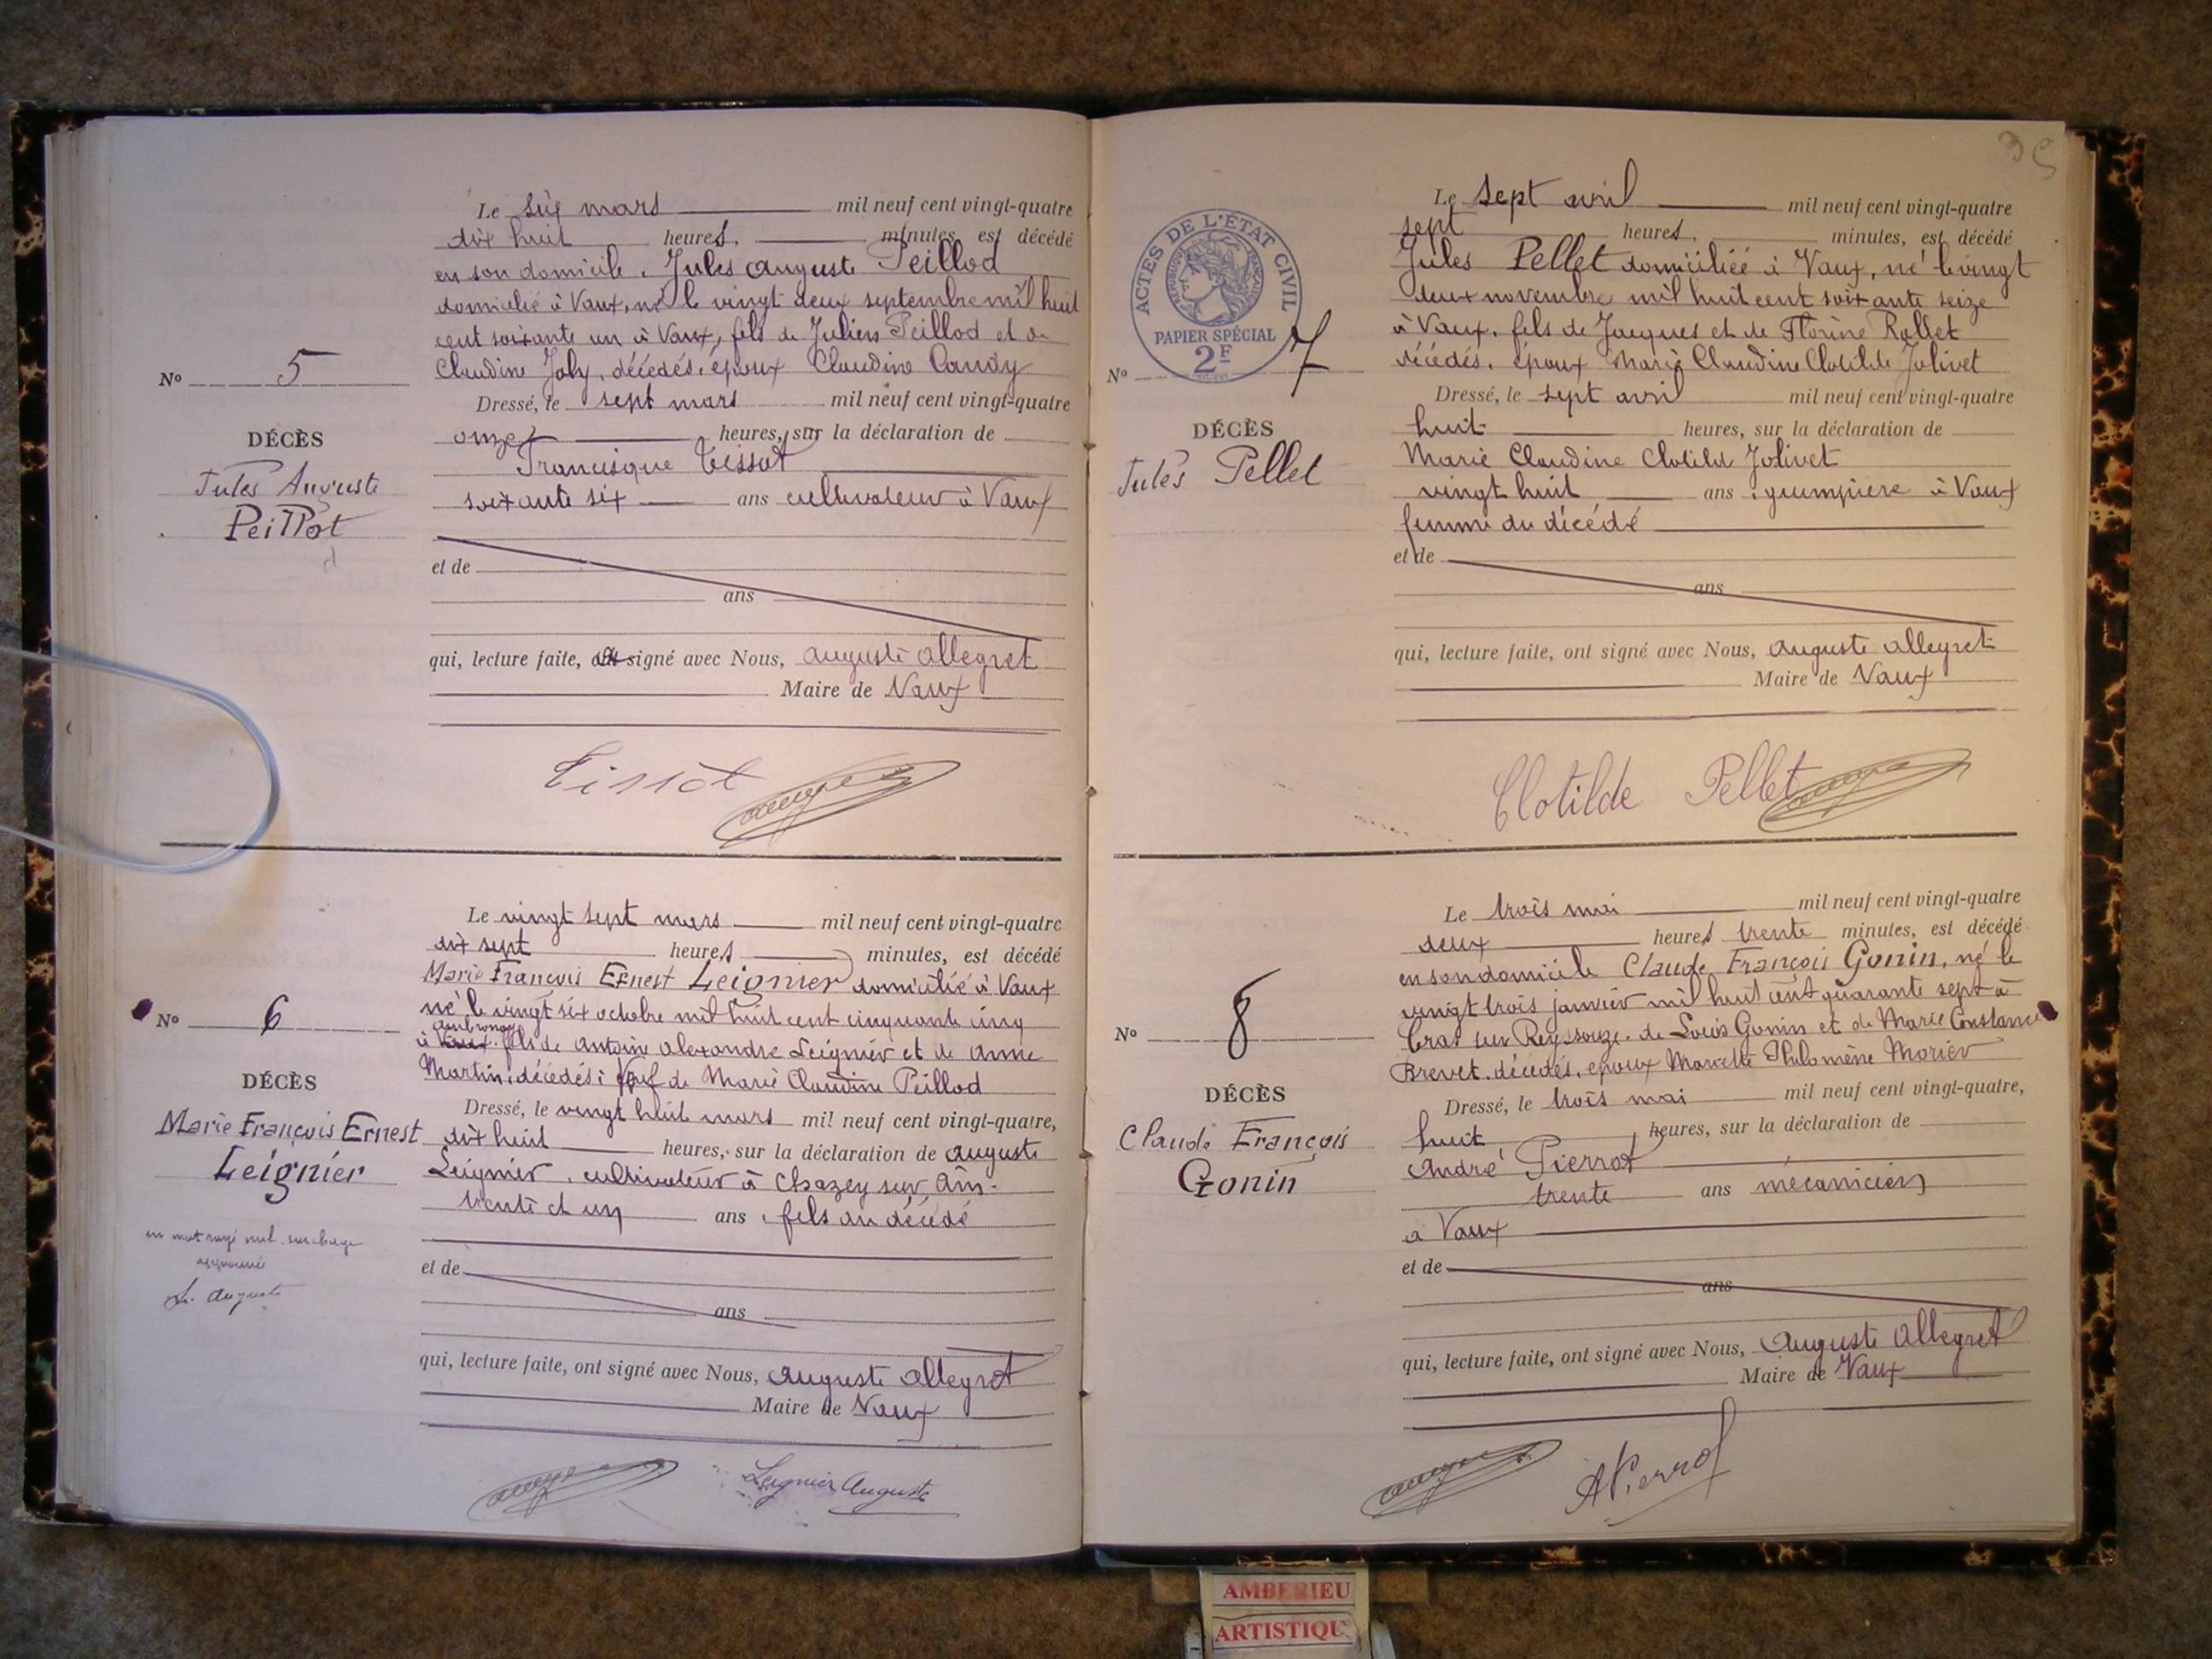 Le six mars mil neuf cent vingt-quatre
dix huit heures, minutes, est décédé
en son domicile, Jules Auguste Peillod
domicilié à Vaux, né le vingt deux septembre mil huit
cent soixante un à Vaux, fils de Julien Peillod et de
Claudine Joly, décédés, époux Claudine Candy
Nº 5
Dressé, le sept mars mil neuf cent vingt-quatre
onze heures, sur la déclaration de
DÉCÈS
Francisque Tissot
Jules Auguste
soixante six ans cultivateur à Vaux
Peillot
d
et de
ans
qui, lecture faite, signé avec Nous, Auguste Allegret
Maire de Vaux
Tissot
Le vingt sept mars mil neuf cent vingt-quatre
dix sept heures minutes, est décédé
Marie François Ernest Leignier domicilié à Vaux
né le vingt six octobre mil huit cent cinquante cinq
Nº 6
à Vaux fils de Antoine Alexandre Leignier et de Anne
Martin, décédés, veuf de Marie Claudine Peillod
DÉCÈS
Dressé, le vingt huit mars mil neuf cent vingt-quatre,
Marie François Ernest
dix huit heures, sur la déclaration de Auguste
Leignier
Leignier, cultivateur à Chazey sur Ain
trente et un ans, fils du décédé
un mot rayé nul. surcharge
approuvé
L. Auguste
et de
ans
qui, lecture faite, ont signé avec Nous, Auguste Allegret
Maire de Vaux
Leignier Auguste
35
Le sept avril mil neuf cent vingt-quatre
sept heures, minutes, est décédé
Jules Pellet domiciliéé à Vaux, né le vingt
deux novembre mil huit cent soixante seize
à Vaux, fils de Jacques et de Florine Rollet
décédés, époux Marie Claudine Clotilde Jolivet
ACTES DE L'ÉTAT CIVIL
RÉPUBLIQUE FRANÇAISE
PAPIER SPÉCIAL
2F
Nº 7
Dressé, le sept avril mil neuf cent vingt-quatre
huit heures, sur la déclaration de
DÉCÈS
Marie Claudine Clotilde Jolivet
Jules Pellet
vingt huit ans, guimpière à Vaux
femme du décédé
et de
ans
qui, lecture faite, ont signé avec Nous, Auguste Allegret
Maire de Vaux
Clotilde Pellet
Le trois mai mil neuf cent vingt-quatre
deux heures trente minutes, est décédé
en son domicile Claude François Gonin, né le
vingt trois janvier mil huit cent quarante sept à
Nº 8
Cras sur Reyssouze, de Louis Gonin et de Marie Constance
Brevet, décédés, époux Mariette Philomène Morier
DÉCÈS
Dressé, le trois mai mil neuf cent vingt-quatre,
Claude François
huit heures, sur la déclaration de
Gonin
André Pierrot
trente ans mécanicien
à Vaux
et de
ans
qui, lecture faite, ont signé avec Nous, Auguste Allegret
Maire de Vaux
APierrot
AMBERIEU
ARTISTIQU